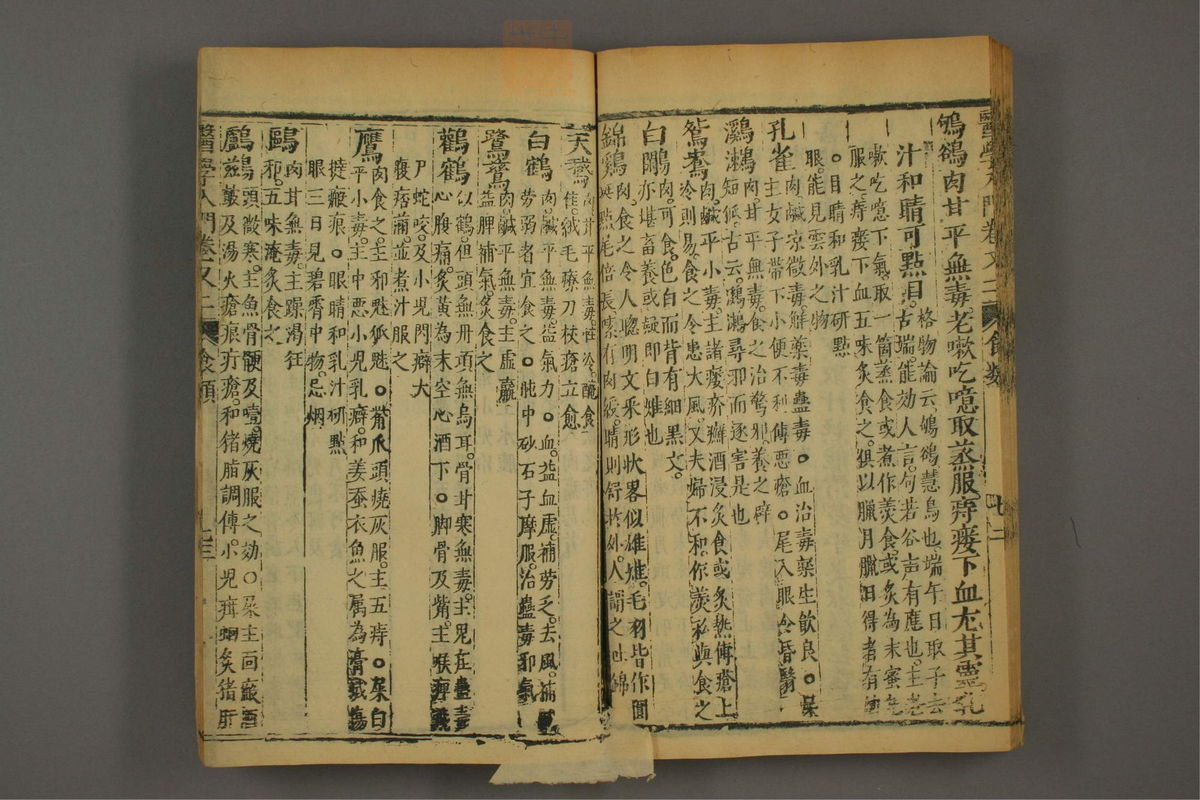 鴝鵒肉甘平無毒老嗽吃噫取蒸服痔瘻下血尤其靈乳
汁和睛可點目
格物論云鴝鵒慧鳥也端午日取子去
古瑞能効人言句若谷声有應也主老
嗽吃噫下氣取一箇蒸食或煮作羮食或炙為末蜜
服之痔瘻下血五味炙食之俱以臘月臘日得者有
目睛和乳汁研點
眼能見雲外之物
孔雀
肉鹹凉微毒觧藥毒蠱毒○血治毒藥生飲良○屎
主女子帶下小便不利傅悪瘡○尾入眼令昏瞖
鸂鶒
肉甘平無毒食之治驚邪養之辟
短狐古云鸂鶒尋邪而逐害是也
鴛鴦
肉鹹平小毒主諸瘻疥癬酒浸炙食或炙热傅瘡上
冷則易食之令患大風又夫婦不和作羮私與食之
白鷳
肉可食色白而背有細黒文
亦堪畜養或疑即白雉也
錦鷄
肉食之令人聰明文采形状畧似雄雉毛羽皆作圎
斑點尾倍長嗉有肉綬晴則舒於外人謂之吐錦
天鵞
肉甘平無毒性冷醃食
佳绒毛療刀杖瘡立愈
白鶴
肉鹹平無毒益氣力○血益血虛補勞乏去風補
劳弱者宜食之○肫中砂石子摩服治蠱毒邪氣
鷺鷥
肉鹹平無毒主虚羸
益脾補氣炙食之
鸛鶴
似鶴但頭無丹項無烏耳骨甘寒無毒主鬼疰蠱毒
心腹痛炙黃為末空心酒下○脚骨及觜主喉痺
尸蛇咬及小児閃癖大
腹痞滿並煮汁服之
鷹
肉食之主邪魅狐魅○觜爪頭燒灰服主五痔○屎白
平小毒主中悪小児乳癖和姜蚕衣魚之属為膏滅傷
撻瘢痕○眼睛和乳汁研點
眼三日見碧霄中物忌烟
鷗
肉甘無毒主躁渴狂
邪五味淹炙食之
鸕鶿
頭微寒主魚骨骾及噎燒灰服之効○屎主面瘢酒
皶及湯火瘡痕疔瘡和猪脂調傅小児疳蛔炙猪肝
醫學入門卷又二
食類
七二
醫學入門卷又二
食類
七三